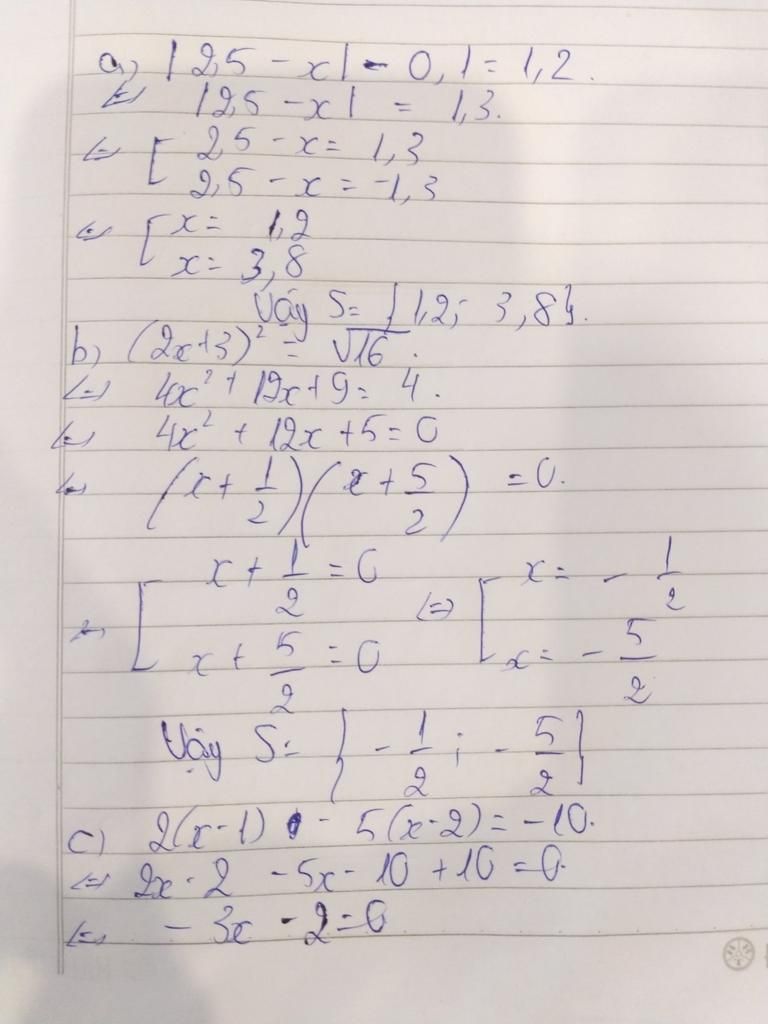 a) |2,5 - x| - 0,1 = 1,2.
⇔ |2,5 - x| = 1,3.
⇔ [ 2,5 - x = 1,3
2,5 - x = -1,3
⇔ [ x = 1,2
x = 3,8
Vậy S = { 1,2; 3,8}.
b) (2x+3)² = √16.
⇔ 4x² + 12x + 9 = 4.
⇔ 4x² + 12x + 5 = 0
⇔ (x + 1/2)(x + 5/2) = 0.
⇔ [ x + 1/2 = 0 ⇔ [ x = - 1/2
x + 5/2 = 0 x = - 5/2
Vậy S = { - 1/2 ; - 5/2 }
c) 2(x-1) - 5(x-2) = -10.
⇔ 2x - 2 - 5x - 10 + 10 = 0.
⇔ - 3x - 2 = 0